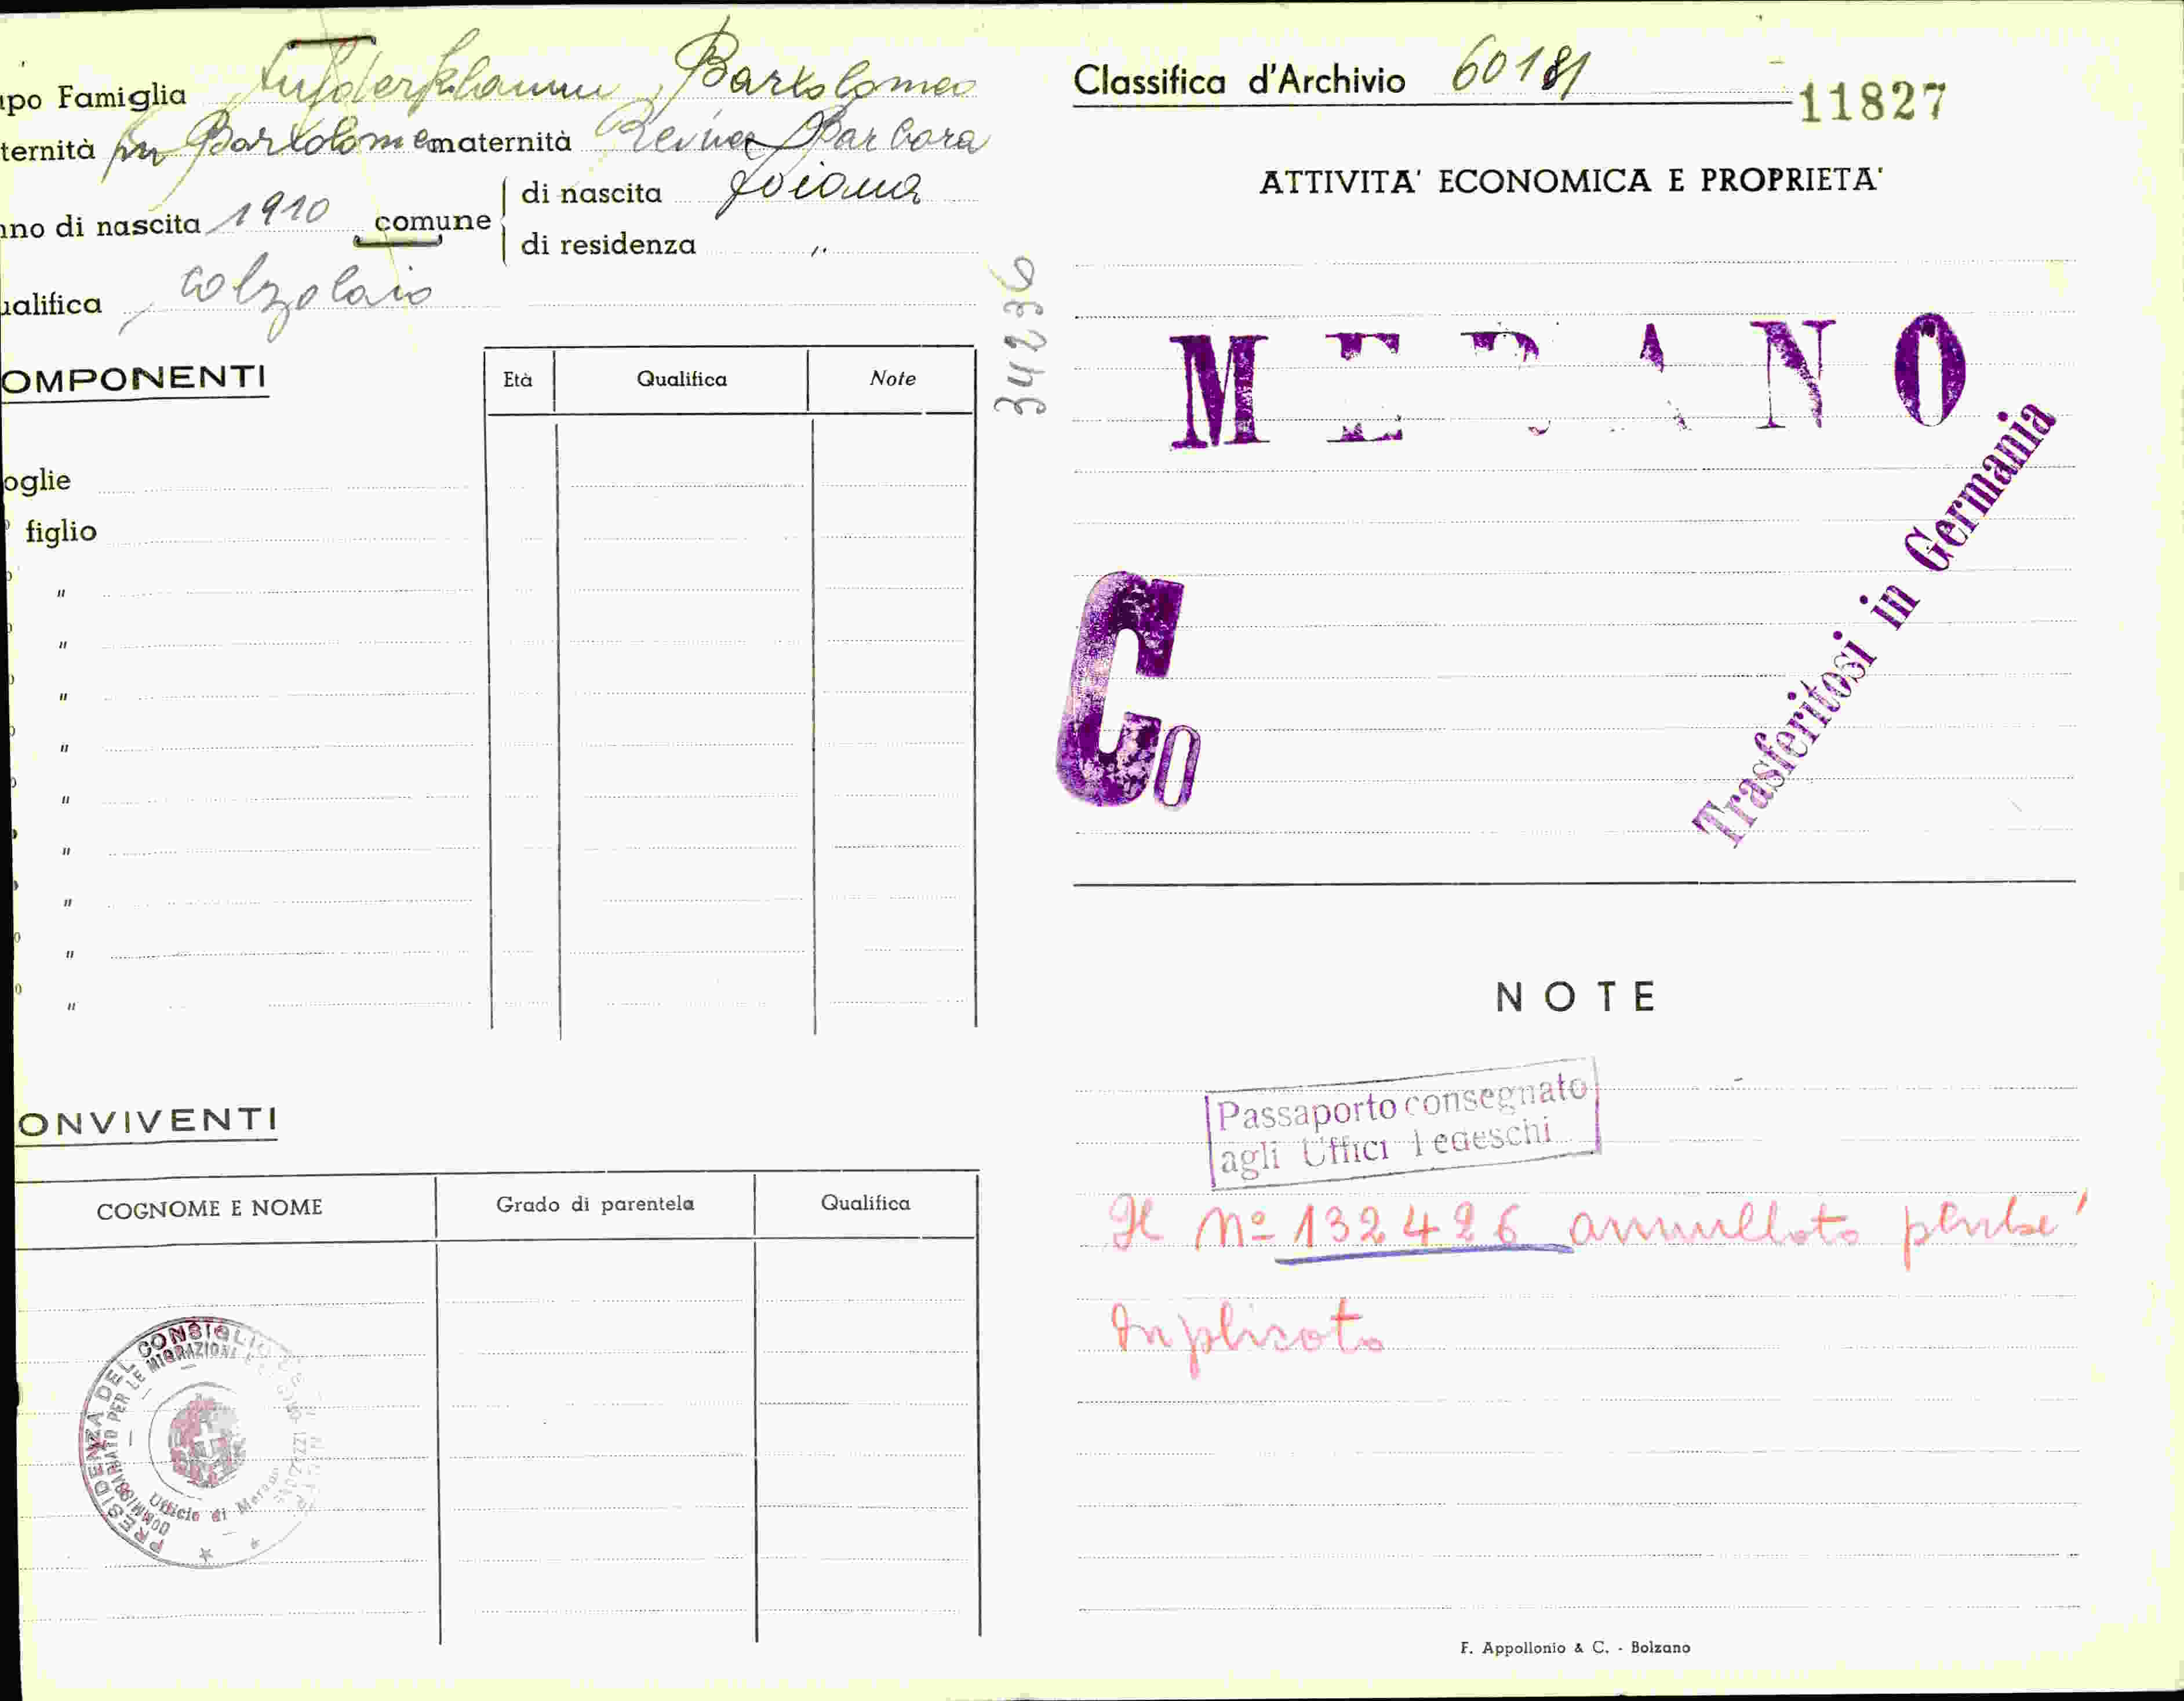 apo Famiglia Aufderklamm, Bartolomeo
ternità fu Bartolomeo maternità Reiner Barbara
nno di nascita 1910 comune di nascita Avelengo
di residenza "
ualifica calzolaio
OMPONENTI
Età Qualifica Note
oglie
figlio
"
"
"
"
"
"
"
"
"
ONVIVENTI
COGNOME E NOME Grado di parentela Qualifica
PRESIDENZA DEL CONSIGLIO
COMMISSARIATO PER LE MIGRAZIONI
Ufficio di Merano
34236
Classifica d'Archivio 60181
11827
ATTIVITA' ECONOMICA E PROPRIETA'
MERANO
Co
Trasferitosi in Germania
NOTE
Passaporto consegnato
agli Uffici Tedeschi
Il Nº 132426 annullato perché
duplicato
F. Appollonio & C. - Bolzano